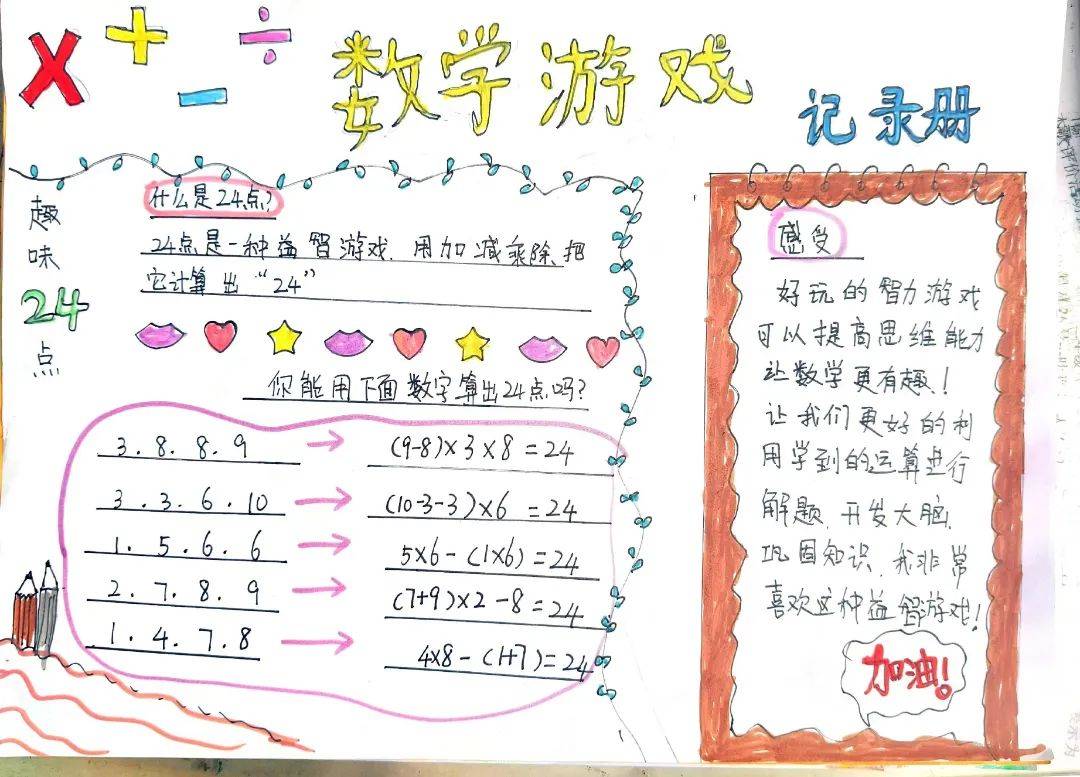 × + - ÷
数学游戏
记录册
趣味24点
什么是24点?
24点是一种益智游戏.用加减乘除把
它计算出“24”
你能用下面数字算出24点吗?
3.8.8.9 → (9-8)×3×8=24
3.3.6.10 → (10-3-3)×6=24
1.5.6.6 → 5×6-(1×6)=24
2.7.8.9 → (7+9)×2-8=24
1.4.7.8 → 4×8-(1+7)=24
感受
好玩的智力游戏
可以提高思维能力
让数学更有趣!
让我们更好的利
用学到的运算进行
解题.开发大脑.
巩固知识.我非常
喜欢这种益智游戏!
加油!